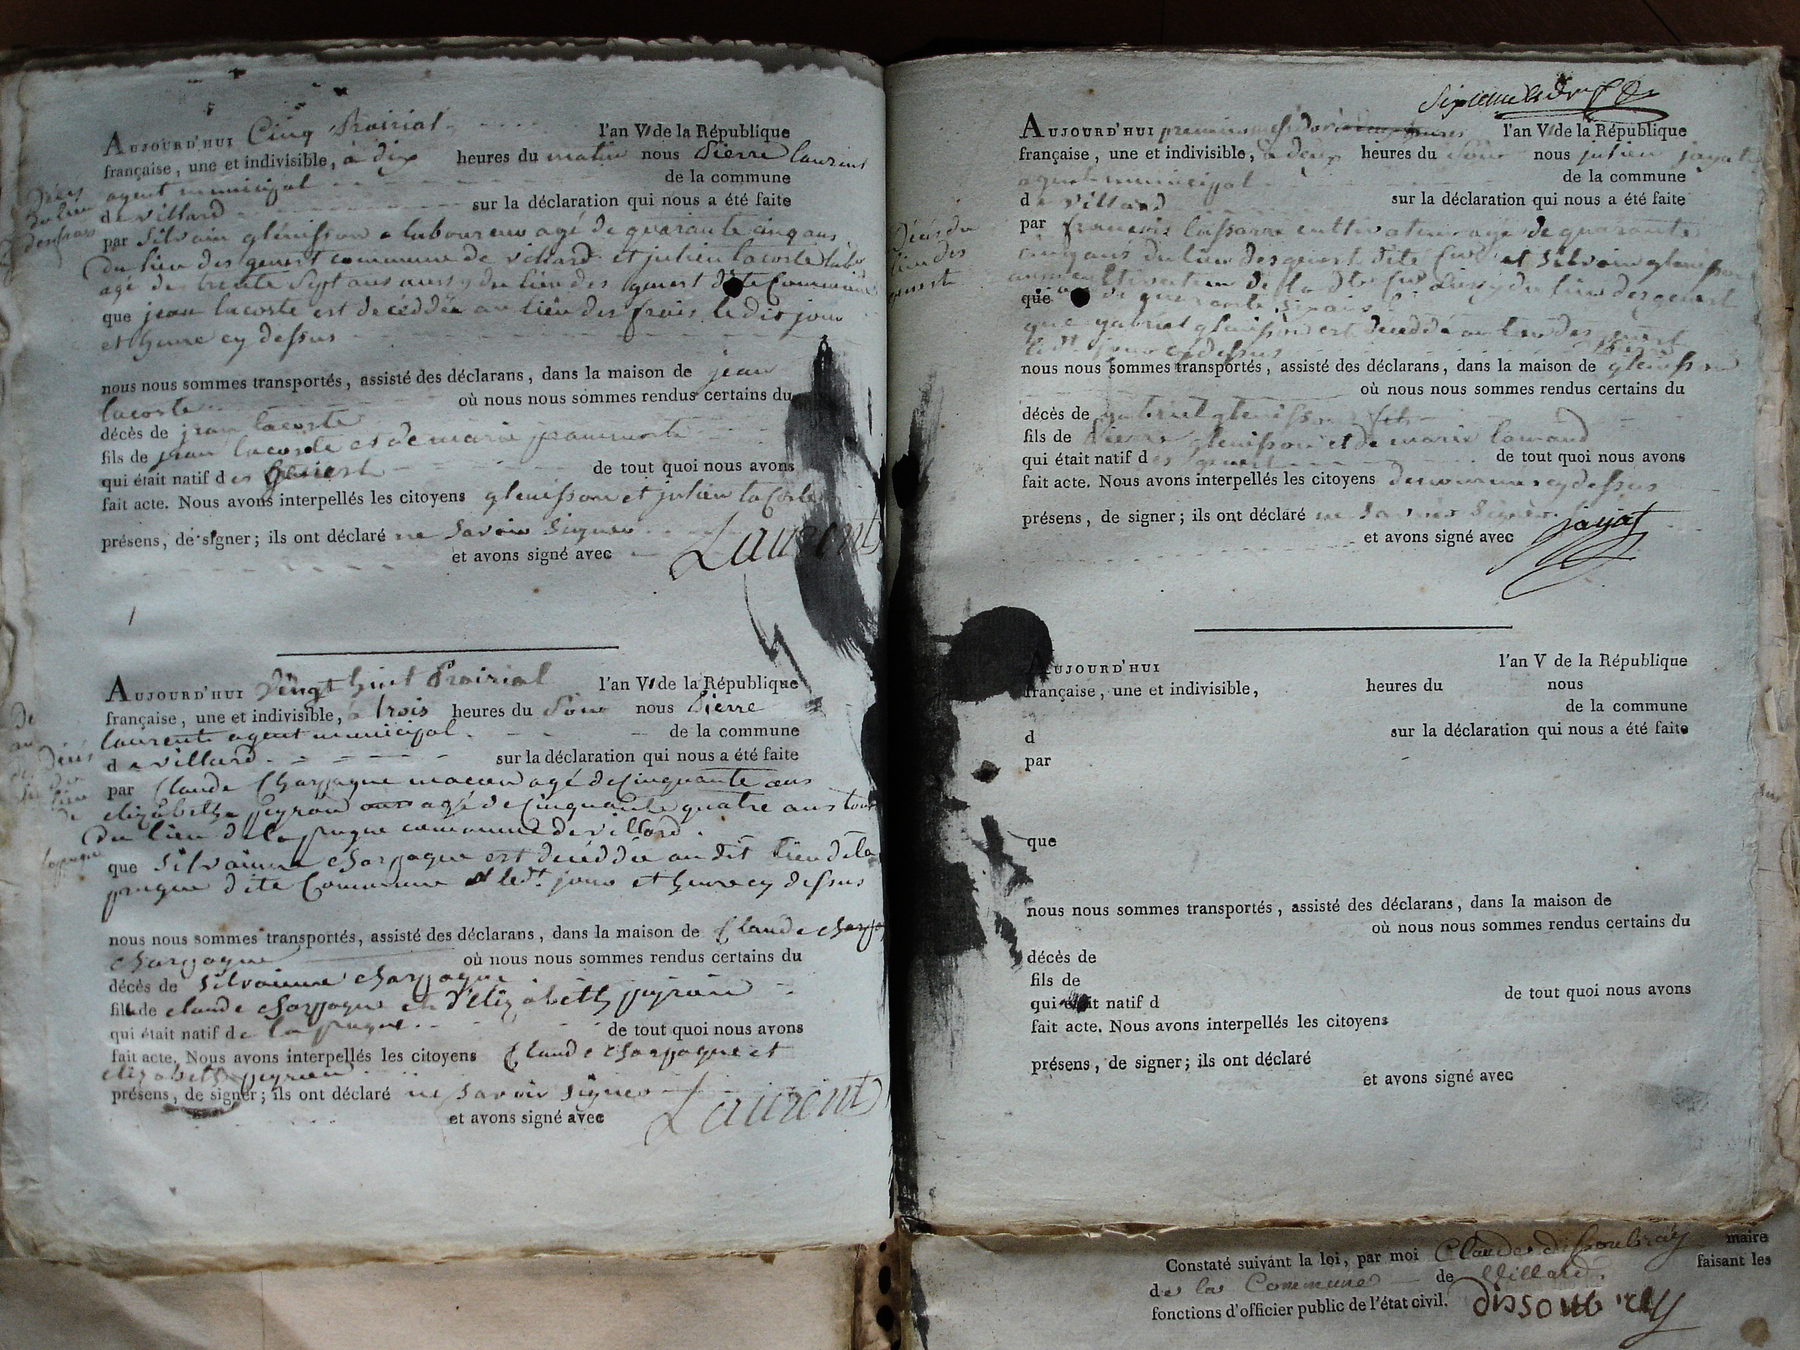 AUJOURD'HUI Cinq Prairial l'an VI de la République
française, une et indivisible, à dix heures du matin nous Pierre laurent
agent municipal de la commune
de villard sur la déclaration qui nous a été faite
par Silvain glénisson laboureur agé de quarante cinq ans
du lieu des genest commune de villard et julien lacoste
agé de trente Sept ans aussy du lieu des genest dite Commune
que jean lacoste est décéddée au lieu des frais ledit jour
et heure cy dessus
nous nous sommes transportés, assisté des déclarans, dans la maison de jean
lacoste où nous nous sommes rendus certains du
décès de jean lacoste
fils de jean lacoste et de marie
qui était natif des de tout quoi nous avons
fait acte. Nous avons interpellés les citoyens glenisson et julien lacoste
présens, de signer; ils ont déclaré ne Savoir Signer
et avons signé avec Laurent
AUJOURD'HUI Vingt huit Prairial l'an VI de la République
française, une et indivisible, à trois heures du Soir nous Pierre
laurent agent municipal de la commune
de villard sur la déclaration qui nous a été faite
par Claude Charpagne macon agé de Cinquante ans
elizabeth peyrand agé de Cinquante quatre ans tous
du lieu de la prugne commune de villard.
que Silvainne charpagne est décéddée au dit lieu de la
prugne dite Commune ledt. jour et heure cy dessus
nous nous sommes transportés, assisté des déclarans, dans la maison de Claude
charpagne où nous nous sommes rendus certains du
décès de Silvainne charpagne
fille de claude charpagne et d'elizabeth
qui était natif de la prugne de tout quoi nous avons
fait acte. Nous avons interpellés les citoyens Claude charpagne et
elizabeth
présens, de signer; ils ont déclaré ne Savoir Signer
et avons signé avec Laurent
AUJOURD'HUI premier messidor l'an VI de la République
française, une et indivisible, à deux heures du Soir nous julien jayat
agent municipal de la commune
de villard sur la déclaration qui nous a été faite
par francois cultivateur agé de quarante
cinq ans du lieu des genest dite et Silvain glenisson
aussy cultivateur du lieu des genest
que
que gabriel glenisson est décéddé au lieu des genest
ledt jour cy dessus
nous nous sommes transportés, assisté des déclarans, dans la maison de glenisson
où nous nous sommes rendus certains du
décès de gabriel glenisson
fils de Pierre glenisson et de marie
qui était natif des genest de tout quoi nous avons
fait acte. Nous avons interpellés les citoyens denommes cy dessus
présens, de signer; ils ont déclaré ne Savoir Signer
et avons signé avec jayat
AUJOURD'HUI l'an V de la République
française, une et indivisible, heures du nous
de la commune
d sur la déclaration qui nous a été faite
par
que
nous nous sommes transportés, assisté des déclarans, dans la maison de
où nous nous sommes rendus certains du
décès de
fils de
qui était natif d de tout quoi nous avons
fait acte. Nous avons interpellés les citoyens
présens, de signer; ils ont déclaré
et avons signé avec
Constaté suivant la loi, par moi Claude dissoubray maire
de la Commune de Villard faisant les
fonctions d'officier public de l'état civil. dissoubray